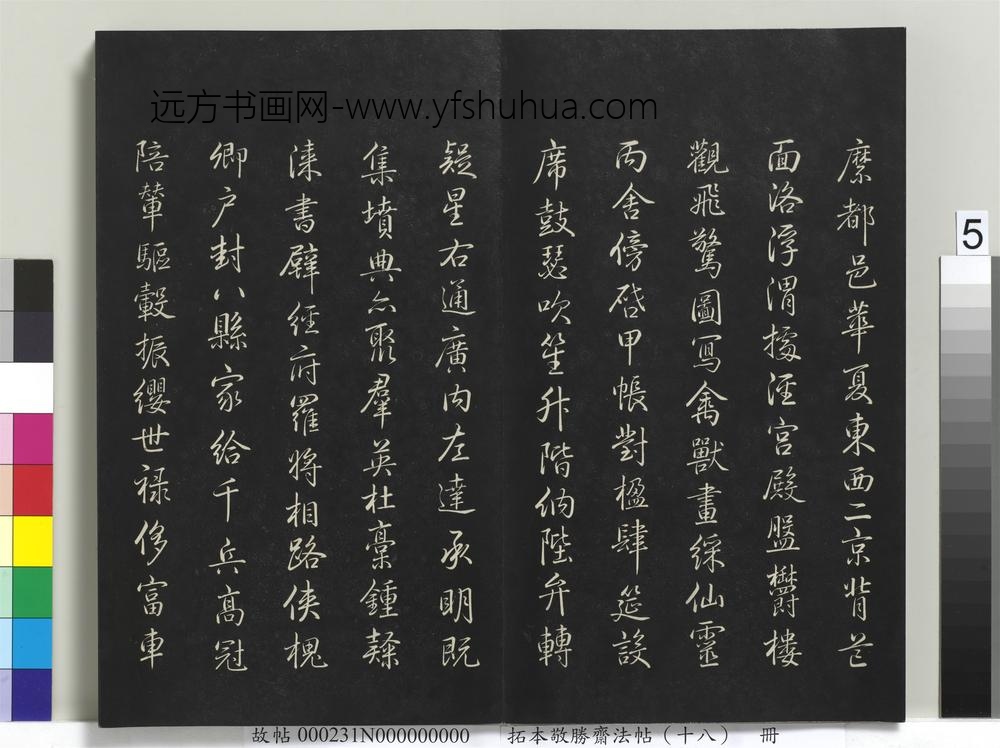 远方书画网-www.yfshuhua.com
縻都邑華夏東西二京背芒
面洛浮渭據涇宮殿盤鬱樓
觀飛驚圖寫禽獸畫綵仙靈
丙舍傍啓甲帳對楹肆筵設
席鼓瑟吹笙升階納陛弁轉
疑星右通廣內左達承明既
集墳典亦聚羣英杜稾鍾隸
漆書壁經府羅將相路俠槐
卿户封八縣家給千兵高冠
陪輦驅轂振纓世祿侈富車
5
故帖000231N000000000 拓本敬勝齋法帖（十八） 冊